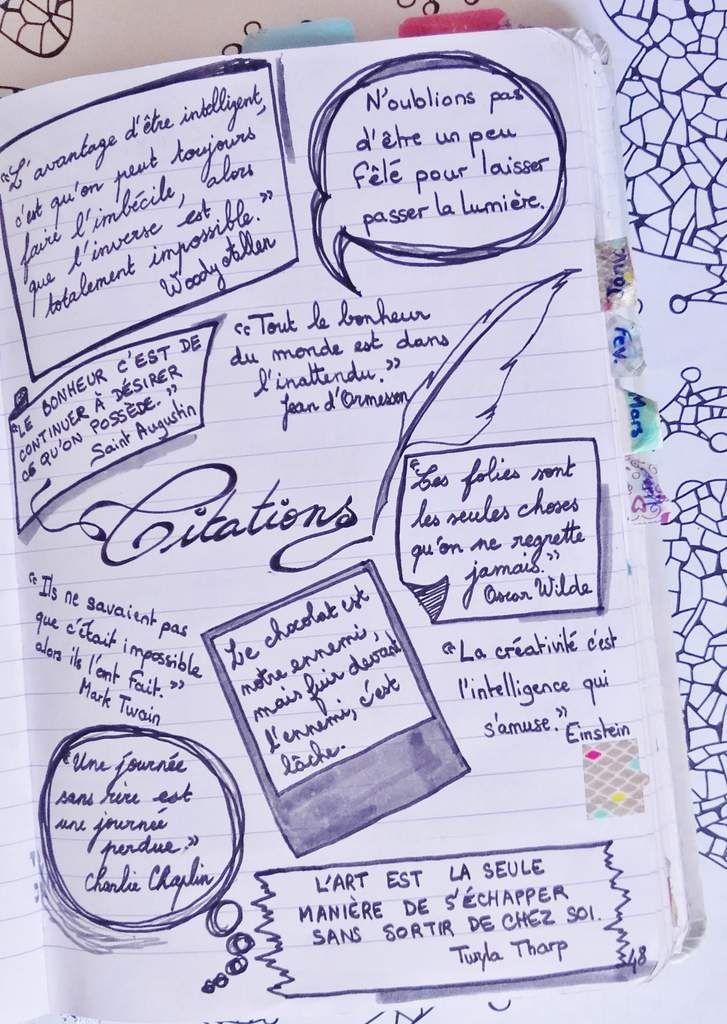 "L'avantage d'être intelligent,
c'est qu'on peut toujours
faire l'imbécile, alors
que l'inverse est
totalement impossible."
Woody Allen
N'oublions pas
d'être un peu
fêlé pour laisser
passer la lumière.
"LE BONHEUR C'EST DE
CONTINUER À DÉSIRER
CE QU'ON POSSÈDE."
Saint Augustin
"Tout le bonheur
du monde est dans
l'inattendu."
Jean d'Ormesson
Citations
"Les folies sont
les seules choses
qu'on ne regrette
jamais."
Oscar Wilde
"Ils ne savaient pas
que c'était impossible
alors ils l'ont fait."
Mark Twain
Le chocolat est
notre ennemi,
mais fuir devant
l'ennemi, c'est
lâche.
"La créativité c'est
l'intelligence qui
s'amuse."
Einstein
"Une journée
sans rire est
une journée
perdue."
Charlie Chaplin
L'ART EST LA SEULE
MANIÈRE DE S'ÉCHAPPER
SANS SORTIR DE CHEZ SOI.
Twyla Tharp
48
Fev.
Mars